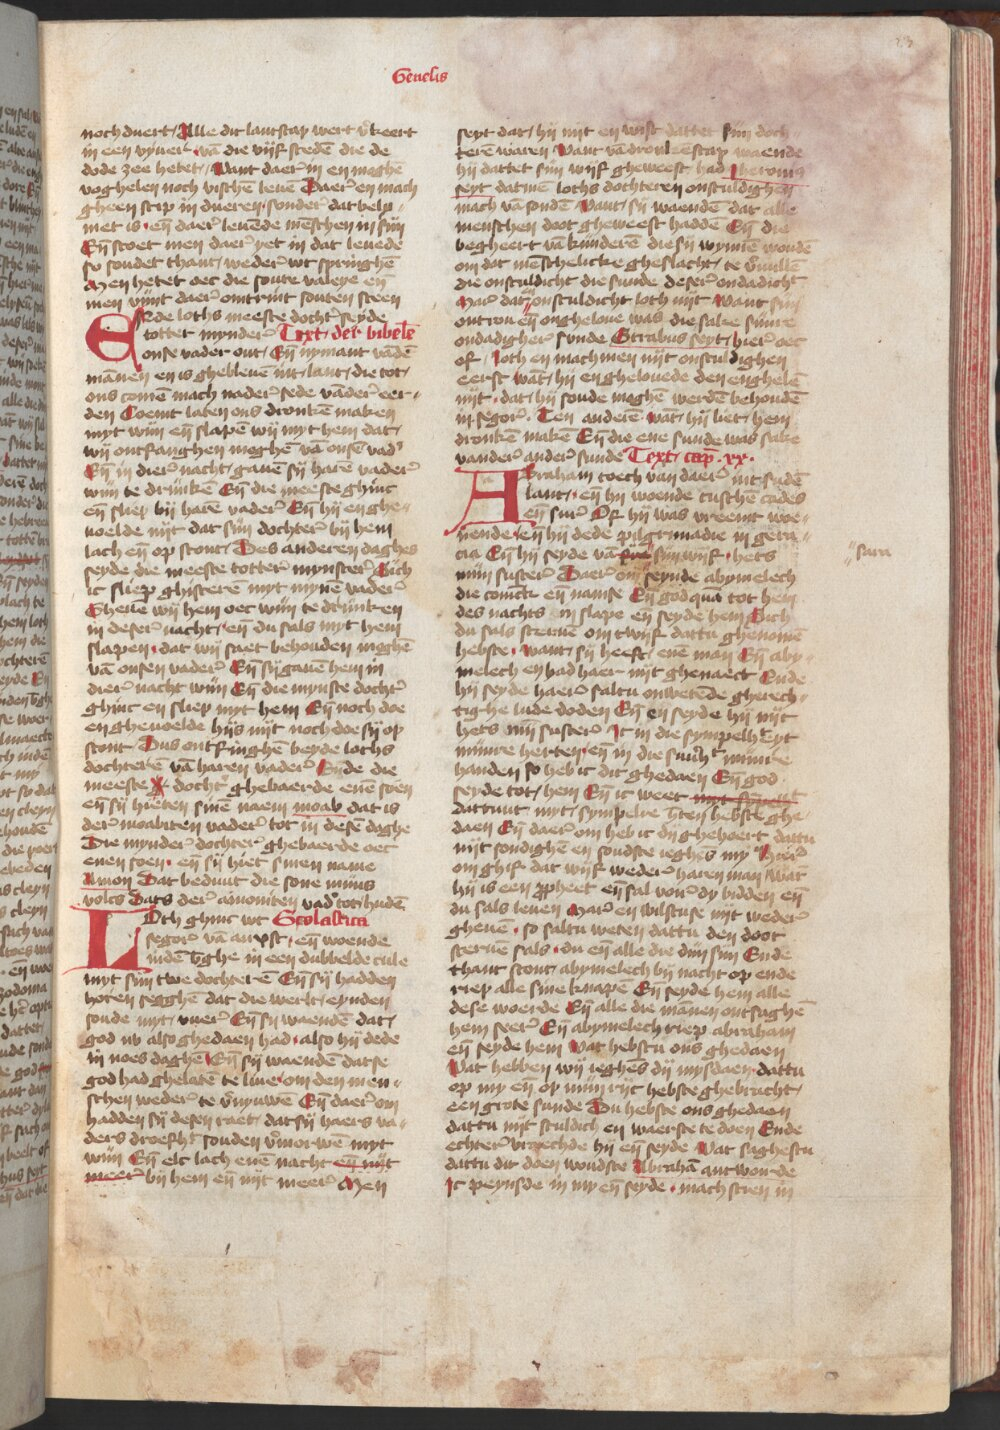 Genesis
noch duert / Alle dit lantscap wert v̓keert
in een vyuer · vā die vijf steden die de
dode zee hetet / Want daer̓ in en moghē
voghelen noch visschē leuē Daer̓ en mach
gheen scip in dueren · sonder̓ dat belp
met is · en̄ daer̓ leuēde mēschen in sijn
En̄ stoet men daer̓ yet in dat leuede
so soudet thant / weder̓ wt springhē
Men hetet oec die soute valeye en̄
men vijnt daer̓ omtrint souten steen
Ende loths meeste docht̓ seyde
totter mynder̓ Text der bibelē
onse vader out / En̄ nymant vā dē
mānen en is ghebleuē int / lant / die tot /
ons comē mach nader̓ sede vā der̓ eer
den Coemt laten ons dronkē maken
myt wijn en̄ slapē wij myt hem dat /
wij ontfanghen moghē vā onsē vad̓
En̄ in dier̓ nacht / gauē sij harē vader̓
wijn te drīkē En̄ die meeste ghinc
en̄ sliep bij harē vader̓ En̄ hij en ghe
uoelde nijt dat sijn dochter̓ bij hem
lach en̄ op stont / Des anderen daghes
seyde die meeste totter̓ mynster̓ Sich
ic sliep ghisterē myt mynē vader̓
Gheue wij hem oec wijn te drincken
in deser̓ nacht / en̄ du sals myt hem
slapen · dat wij saet behouden moghē
vā onsen vader̓ En̄ sij gauē hem in
dier̓ nacht wijn En̄ die mynste docht̓
ghinc en sliep myt hem En̄ noch doe
en gheuoelde hijs nijt noch doe sij op
stont Dus ontfinghē beyde loths
dochterē vā haren vader̓ Ende die
meeste docht̓ ghebaerde enē soen
en̄ sij hieten sinē naem moab dat is
der̓ moabiten vader̓ tot in desē daghe
Die mynder̓ dochter̓ ghebaerde oec
enen soen · en̄ sij hiet sinen name
Amon Dat beduut die sone mijns
volcs Dats der̓ amoniten vad̓ tot hudē
Loth ghinc wt Scolastica
segor̓ vā anxst / en̄ woende
in dē b̓ghe in een dubbelde cule
myt sijn twe dochterē En̄ sij hadden
horen segghē dat die werlt eynden
soude myt / vuer̓ En̄ sij waendē dat /
god nv also ghedaen had · also hij dede
in noes daghē En̄ sij waendē datse
god had ghelatē te liue / om den men
schen weder̓ te v̓nyuwē En̄ daer̓ om
hadden sij desen raet / dat sij haers va
ders droefh̓t souden v̓morwē myt
wijn En̄ elc lach enē nacht en̄ nijt
meer̓ bij hem en̄ nijt meer̓ Men
seyt dat / hij nijt en wist dattet sijn doch
terē waren Want vā dronkēscap waende
hij dattet sijn wijf gheweest had Iheronim̓
seyt datmē loths dochteren onsculdighen
mach vā sondē Want / sij waendē dat alle
menschen doot gheweest haddē En̄ die
begheert vā kīnderē die sij wynnē woudē
om dat mēschelicke gheslacht / te v̓vullē
die onsculdicht die sunde deser̓ ondadich̓t
Mar̓ daer̓ onsculdicht loth nijt Want sijn
ontrou en̄ ongheloue was die sake sijnre
ondadigher̓ sunde Strabus seyt / hier̓ oec
of / Loth en mach men nijt onsculdighen
eerst wāt / hij en ghelouede den enghelē
nijt · dat / hij soude moghē werdē behoudē
in segor̓ · Ten anderē wāt / hij liet / hem
dronkē makē En̄ die ene sunde was sake
vander̓ ander̓ sunde Text cap̄ · xx ·
Abraham toech van daer̓ int sudē
lant / en̄ hij woende tusschē cades
en̄ sur̓ Of hij was vreemt woe
nende / en̄ hij dede pilgrimadie in gera
cia En̄ hij seyde vā sijn wijf · hets
mijn suster̓ Daer̓ om seynde abymelech
die coninck en̄ namse En̄ god quā tot hem
des nachts in slape en̄ seyde hem Sich
du sals steruē om twijf dattu ghenomē
hebste · want / sij heeft / enē man En̄ aby
melech en had haer nijt ghenaect Ende
hij seyde haer̓ saltu onwetēde gherech
tighe lude doden En̄ en seyde hij nijt
hets mij suster̓ Ic in die sympelh̓eyt
mijnre herten · en̄ in die suuh̓t mijnre
handen so heb ic dit ghedaen En̄ god
seyde tot / hem En̄ ic weet
dattuut myt / sympelre h̓ten hebste ghe
daen En̄ daer̓ om heb ic dij ghehoert dattu
nijt sondighē en soudste ieghēs my Hier̓
om ghif dat wijf weder̓ haren man / Wāt
hij is een ꝓpheet en̄ sal voer̓ dy bidden en̄
du sals leuen Mar̓ en wilstuse nijt weder̓
gheuē · so saltu weten dattu den doot
steruē sals · du en̄ alle die dijn sijn Ende
thant stont / abymelech bij nacht op ende
riep alle sine knapē En̄ seyde hem alle
dese woerde En̄ alle die mānen ontsaghē
hem seer̓ En̄ abymelech riep abraham
en̄ seyde hem Wat hebstu ons ghedaen
Wat hebben wij ieghēs dij mysdaen dattu
op my en̄ op mijn rijc hebste ghebracht /
een grote sunde Du hebste ons ghedaen
dattu nijt sculdich en waerste te doen Ende
echter̓ vraechde hij en̄ seyde Wat saghestu
dattu dit doen woudste Abrahā antworde
Ic peynsde in my en̄ seyde · mach scien in
sara